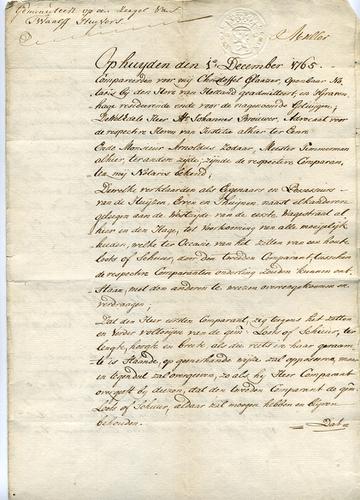 Geminuteert op een Zegel van
Ophuyden den 1e December 1765
Compareerden voor mij Christoffel Glanzer, Openbaar No,,
taris bij den Hove van Holland geadmitteert, en 's Graven,,
hage resideerende ende voor de nagenoemde Getuijgen;
Johannes Advocaat voor
de respective Hoven van Justitie alhier ter eenre
Ende Monsieur Arnoldus Meester Timmerman
alhier, ter andere zijde; zijnde de respective Comparan,,
ten mij Notaris bekend;
Dewelke verklaarden als Eijgenaars en Possesseurs
van de Huijzen, Erven en Thuijnen, naast elkanderen
gelegen aan de Westzijde van de eerste Wagestraat al
hier in den Hage, tot voorkoming van alle moeijelijk
heeden, welke ter Occasie van het zetten van een houte
Loots of Schuur, door den tweeden Comparant, tusschen
de respective Comparanten onderling zouden kunnen ont,,
staan, met den anderen te weezen overeengekomen en
verdraagen;
Dat den Heer eersten Comparant, zig tegens het zetten
en verder voltoijen van de gem: Loots of Schuur, ter
lengte, hoogte en breete als die reets in haar geraam,,
te is staande, op geenerhande wijze zal opposeeren, maar
in tegendeel zal overgeeven, zo als hij Heer Comparant
overgeeft bij deezen, dat den tweeden Comparant de gem:
Loots of Schuur, aldaar zal mogen hebben en blijven
behouden.
Dat